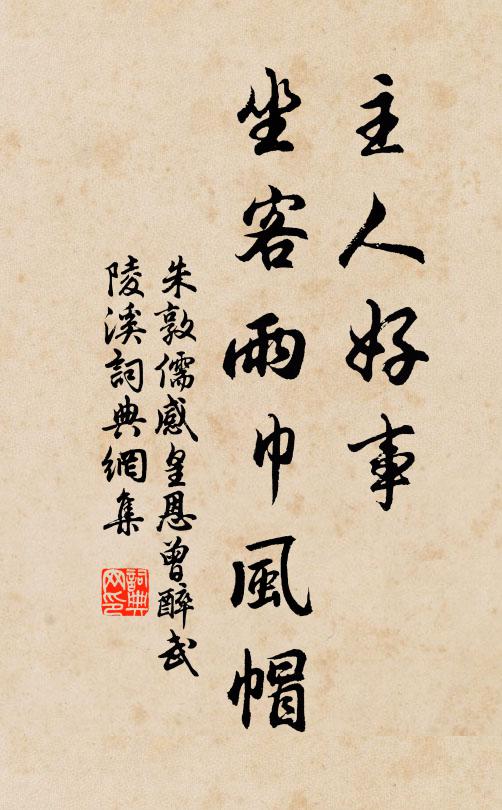 主人好事
坐客雨巾風帽
朱敦儒感皇恩曾醉武
陵溪詞典網集
詞典网印